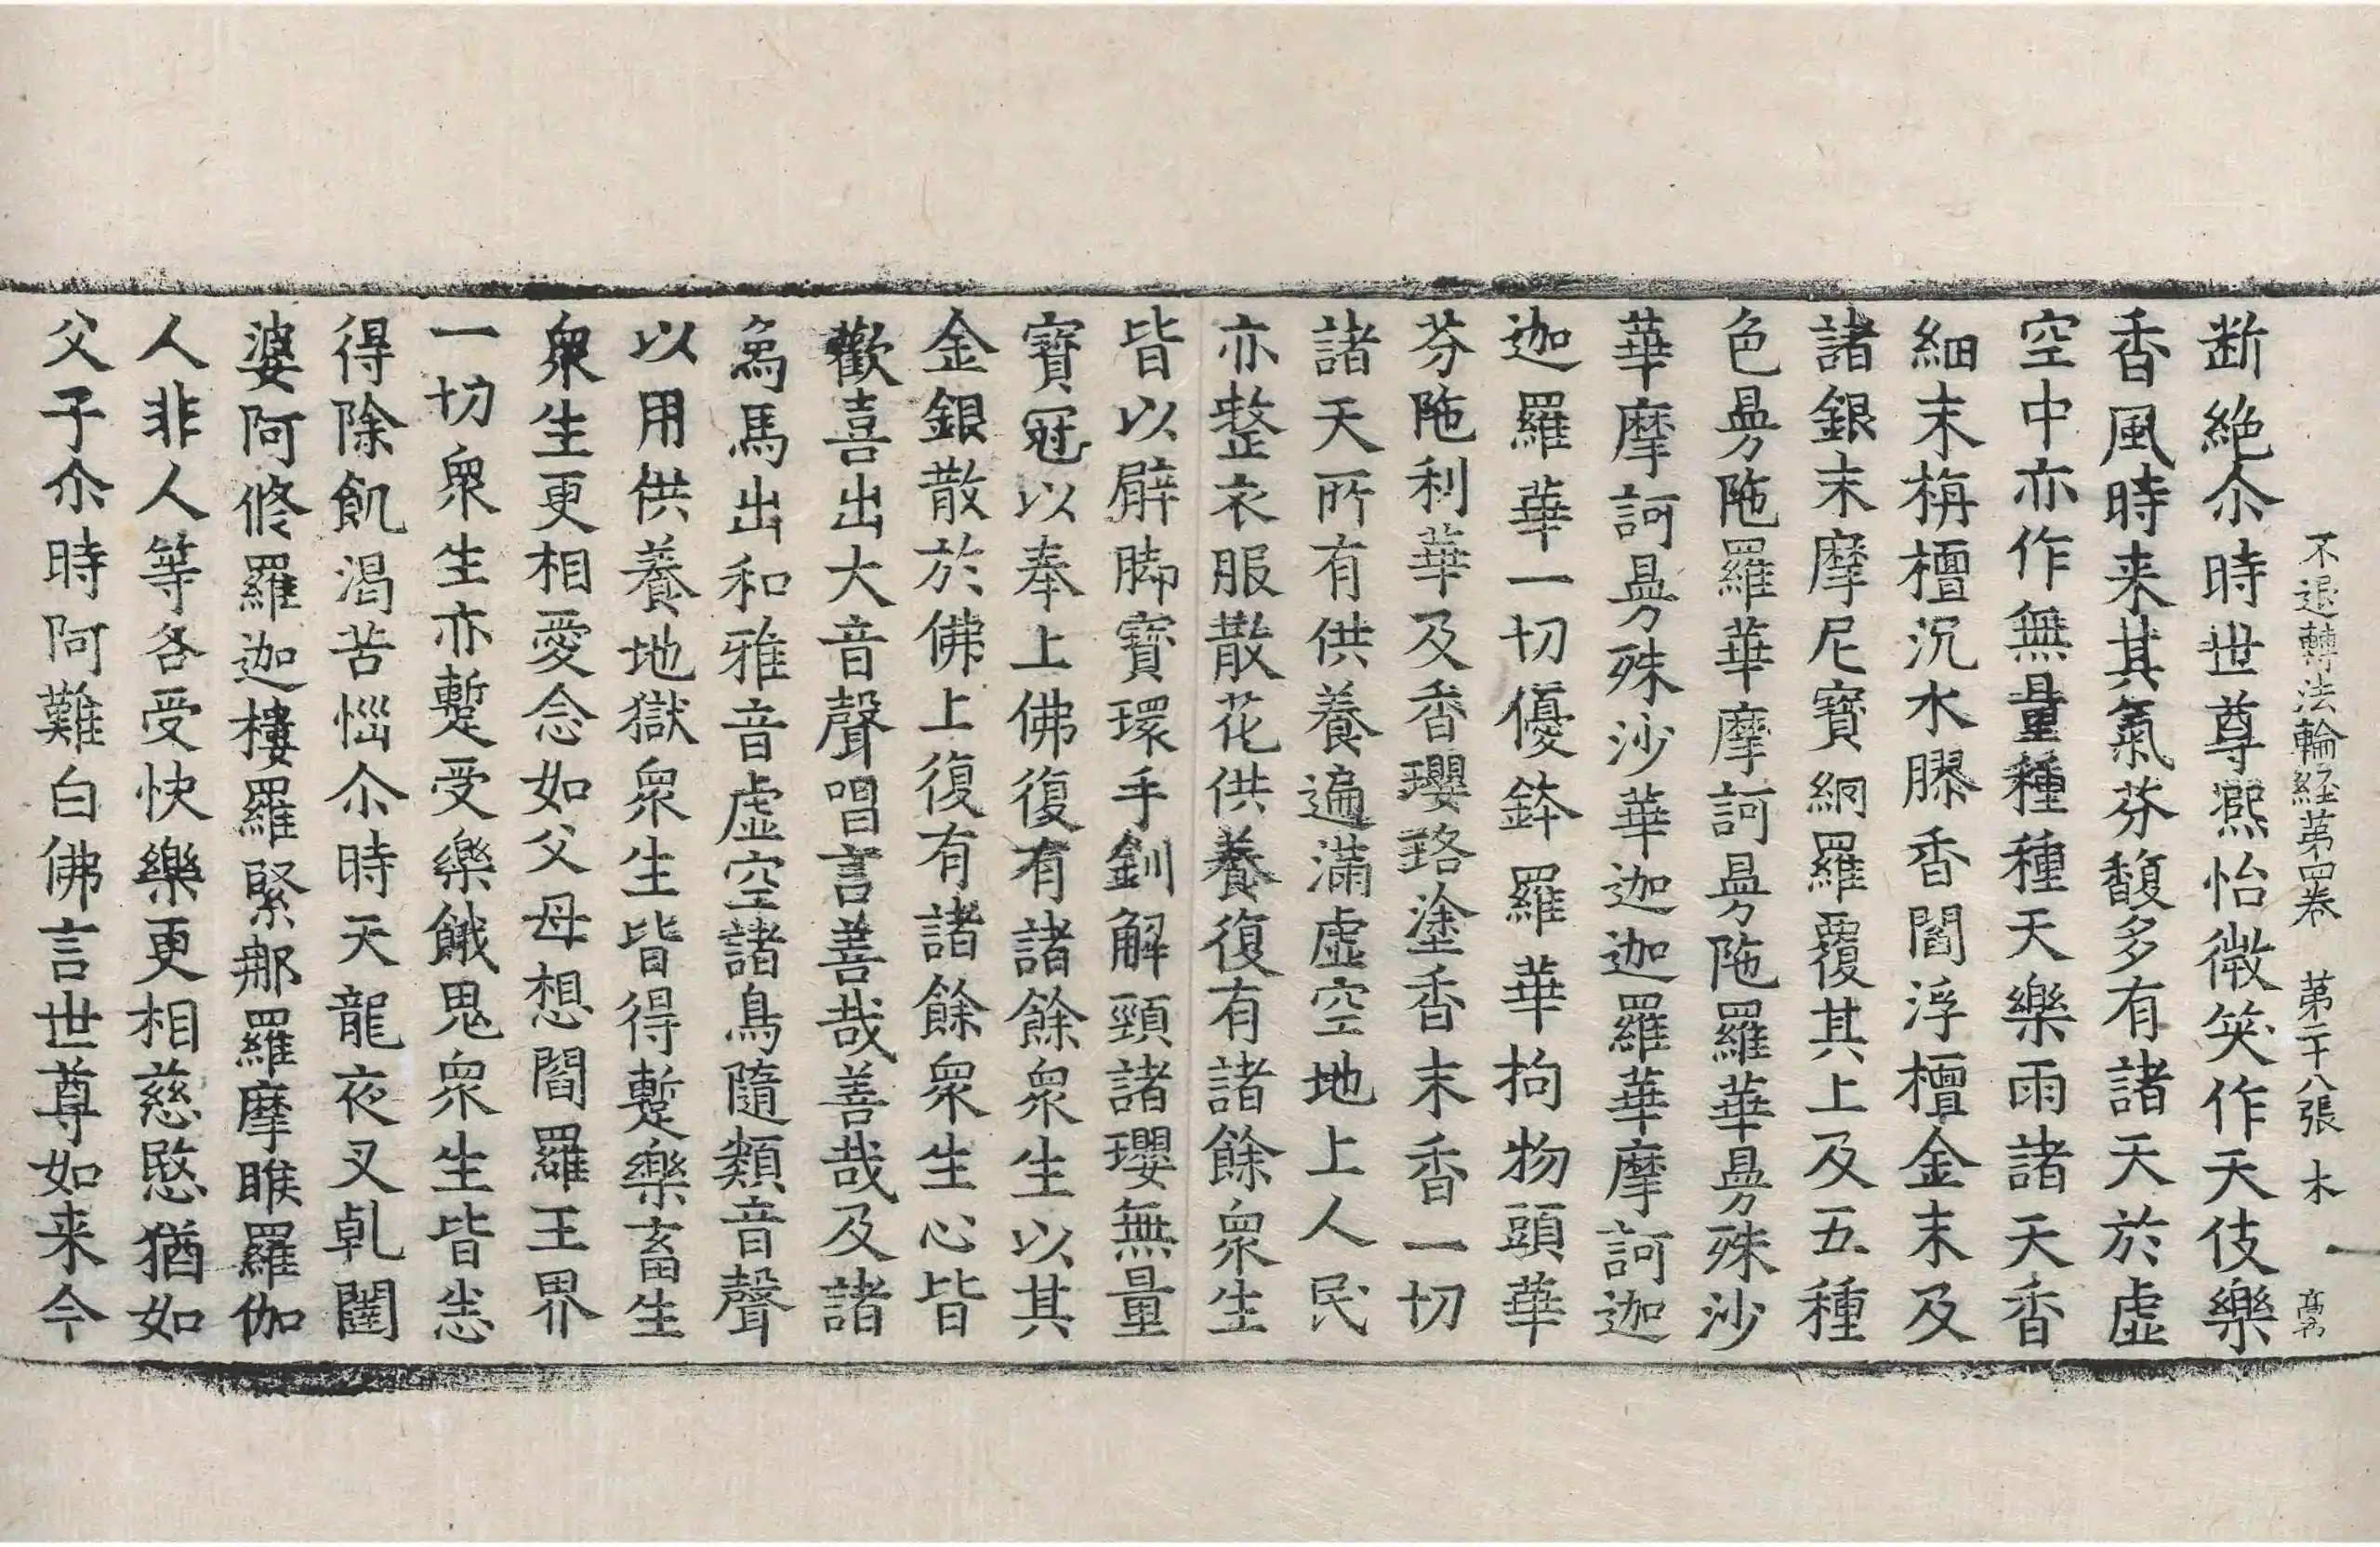 不退轉法輪経苐四卷 苐二十八張 木
断絶尒時世尊熈怡微笑作天伎樂
香風時来其氣芬馥多有諸天於虚
空中亦作無量種種天樂雨諸天香
細末栴檀沉水膠香閻浮檀金末及
諸銀末摩尼寶網羅覆其上及五種
色㬅陁羅華摩訶㬅陁羅華㬅殊沙
華摩訶㬅殊沙華迦迦羅華摩訶迦
迦羅華一切優鉢羅華拘物頭華
芬陁利華及香瓔珞塗香末香一切
諸天所有供養遍滿虚空地上人民
亦整衣服散花供養復有諸餘衆生
皆以臂腳寶環手釧解頸諸瓔無量
寶冠以奉上佛復有諸餘衆生以其
金銀散於佛上復有諸餘衆生心皆
歡喜出大音聲唱言善哉善哉及諸
烏馬出和雅音虚空諸鳥隨類音聲
以用供養地獄衆生皆得蹔樂畜生
衆生更相愛念如父母想閻羅王界
一切衆生亦蹔受樂餓鬼衆生皆悉
得除飢渴苦惱尒時天龍夜叉乹闥
婆阿脩羅迦樓羅緊那羅摩睺羅伽
人非人等各受快樂更相慈愍猶如
父子尒時阿難白佛言世尊如来今